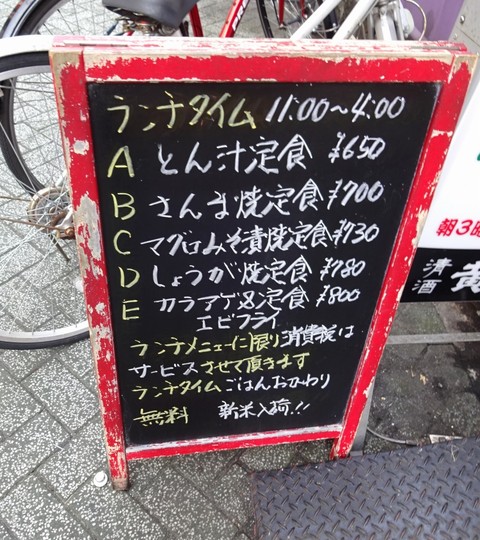 ランチタイム 11:00～4:00
A とん汁定食 ¥650
B さんま焼定食 ¥700
C マグロみそ漬焼定食 ¥730
D しょうが焼定食 ¥780
E カラアゲ&定食 ¥800
エビフライ
ランチメニューに限り消費税は
サービスさせて頂きます
ランチタイムごはんおかわり
無料 新米入荷!!
朝3時
清酒